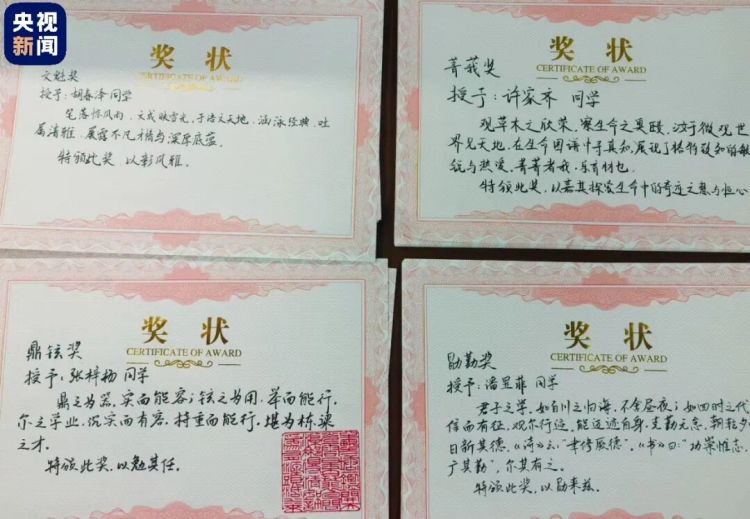 央视
新闻
奖 状
CERTIFICATE OF AWARD
文魁奖
授予:胡春泽同学
笔落惊风雨,文成映雪光,于语文天地,涵泳经典,吐
属清雅,展露不凡才情与深厚底蕴。
特颁此奖,以彰风雅。
奖 状
CERTIFICATE OF AWARD
菁莪奖
授予:许家齐 同学
观草木之欣荣,察生命之奥赜,汝于微观世
界见天地,在生命图谱中寻真知,展现了格物致知的敏
锐与热爱,菁菁者莪,乐育材也。
特颁此奖,以嘉其探索生命中的奇迹之慧与恒心
奖 状
CERTIFICATE OF AWARD
鼎铉奖
授予:张梓杨 同学
鼎之为器,实而能容;铉之为用,举而能行,
尔之学业,沉实而有容,持重而能行,堪为栋梁
之才。
特颁此奖,以勉其任。
奖 状
CERTIFICATE OF AWARD
勖勤奖
授予:潘昱菲 同学
君子之学,如百川之归海,不舍昼夜;如四时之代
信而有征,观尔行迹,能迈迹自身,克勤无怠,朝乾夕
日新其德,《诗》云:"聿修厥德",《书》曰:"功崇惟志,
广其勤",尔其有之。
特颁此奖,以勖来兹。